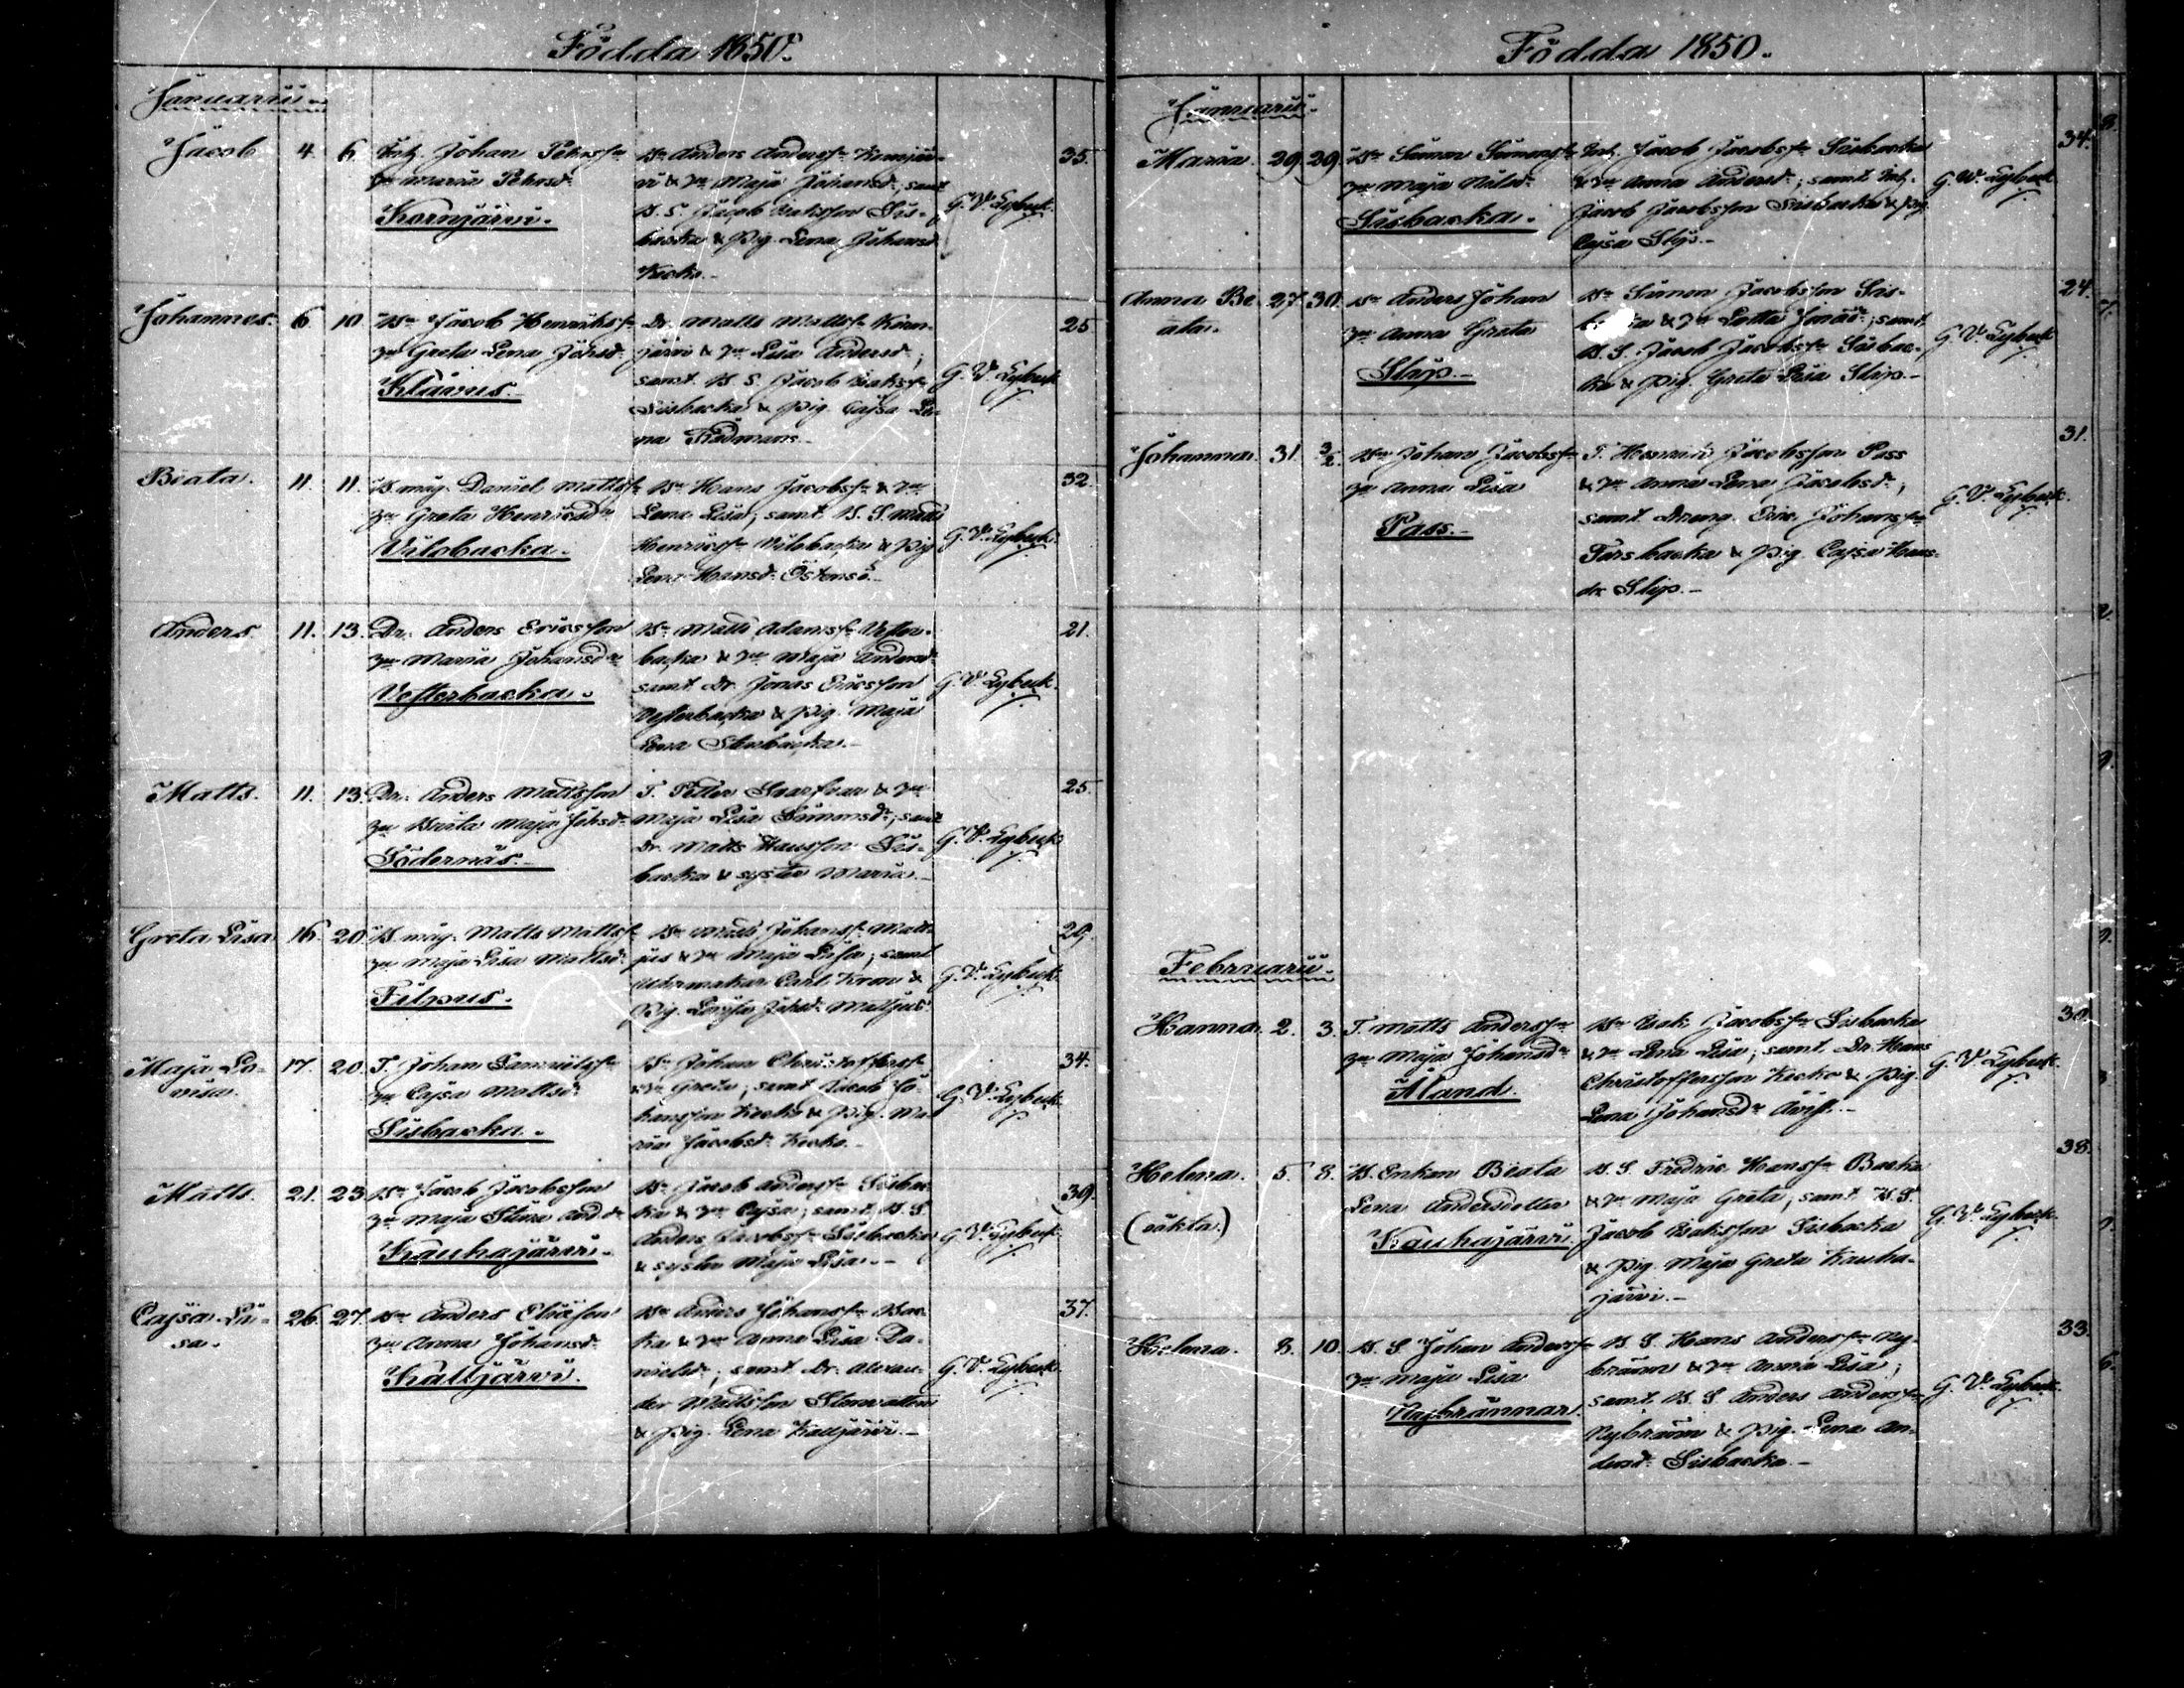 Födda 1850.
Januarii.
Jacob 4. 6 Inh. Johan Pehrss:n
h:u Maria Pehrsd:r
Kornjärvi.
B:n Anders Anderss:n Kornjär-
vi & h:u Maja Johansd:r, samt
B. S. Jacob Isaksson Sis-
backa & Pig. Lena Johansd:r
Kecko.
G. V. Lybeck.
35.
Johannes. 6. 10. B:n Jacob Henrikss:n
h:u Greta Lena Johsd:r
Klamus.
Dr. Matts Mattss:n Korn-
järvi & h:u Lisa Andersd:r;
samt B. S. Jacob Isakss:n
Sisbacka & Pig. Cajsa Le-
na Rådmans.
G. V. Lybeck
25.
Beata. 11. 11. B. måg. Daniel Mattss:n
h:u Greta Henricsd:r
Vilobacka.
B:n Hans Jacobss:n & h:u
Lena Lisa; samt B. S. Matts
Henricss:n Vilobacka & Pig
Lena Hansd:r Östensö.
G. V. Lybeck.
32.
Anders. 11. 13. Dr. Anders Ericsson
h:u Maria Johansd:r
Vesterbacka.
B:n Matts Adamss:n Vester-
backa & h:u Maja Andersd:r
samt Dr. Jonas Ericsson
Vesterbacka & Pig. Maja
Lena Stenbacka.
G. V. Lybeck.
21.
Matts. 11. 13. Dr. Anders Mattsson
h:u Brita Maja Johsd:r
Södernäs.
T. Petter Snarfvar & h:u
Maja Lisa Simonsd:r, samt
Dr. Matts Hansson Sis-
backa & syster Maria.
G. V. Lybeck.
25.
Greta Lisa 16. 20. B. måg. Matts Mattss:n
h:u Maja Lisa Mattsd:r
Filpus.
B:n Matts Johanss:n Matt-
jus & h:u Maja Lisa; samt
Urmakar Carl Kron &
Pig. Lovisa Johsd:r Mattjus.
G. V. Lybeck.
29.
Maja Lo-
visa. 17. 20. T. Johan Samuelss:n
h:u Cajsa Mattsd:r
Sisbacka.
B:n Johan Christofferss:n
& h:u Greta; samt Jacob Jo-
hansson Kecko & Pig. Ma-
ria Jacobsd:r Kecko.
G. V. Lybeck.
34.
Matts. 21. 23. B:n Jacob Jacobsson
h:u Maja Stina And.dr
Kauhajärvi.
B:n Jacob Anderss:n Sisbac-
ka & h:u Cajsa; samt B. S.
Anders Jacobss:n Sisbacka
& syster Maja Lisa.
G. V. Lybeck.
39.
Cajsa Li-
sa. 26. 27. B:n Anders Eliasson
h:u Anna Johansd:r
Kalljärvi.
B:n Anders Johanss:n Bac-
ka & h:u Anna Lisa Da-
nielsd:r; samt Dr. Alexan-
der Mattsson
& Pig. Lena Kalljärvi.
G. V. Lybeck.
37.
Födda 1850.
Januarii.
Maria. 29. 29. B:n Simon Simonss:n
h:u Maja Nilsd:r
Sisbacka.
Inh. Jacob Jacobss:n Sisbacka
& h:u Anna Andersd:r; samt Inh.
Jacob Jacobsson Sisbacka & Pig
Cajsa Slip.
G. V. Lybeck
34.
Anna Be-
ata. 27. 30. B:n Anders Johan
h:u Anna Greta
Slip.
B:n Simon Jacobsson Sis-
& h:u Lotta Jonasd:r; samt
B. S. Jacob Jacobss:n Sisbac-
ka & Pig. Greta Lisa Slip.
G. V. Lybeck
24.
Johanna. 31. 3/2. B:n Johan Jacobss:n
h:u Anna Lisa
Pass.
T. Henrik Jacobsson Pass
& h:u Anna Lena Jacobsd:r;
samt Dreng. Eric Johanss:n
Forsbacka & Pig. Cajsa Hans-
dr Slip.
G. V. Lybeck.
31.
Februarii.
Hanna. 2. 3. T. Matts Anderss:n
h:u Maja Johansd:r
Åland.
B:n Isak Jacobss:n Sisbacka
& h:u Lena Lisa; samt Dr. Hans
Christoffersson Kecko & Pig.
Lena Johansd:r
G. V. Lybeck.
30.
Helena. 5. 8. B. Enkan Beata
(oäkta)
Lena Andersdotter
Kauhajärvi.
B. S. Fredric Hanss:n Backa
& h:u Maja Greta; samt B. S.
Jacob Isaksson Sisbacka
& Pig. Maja Greta Kauha-
järvi.
G. V. Lybeck.
38.
Helena. 8. 10. B. S. Johan Anderss:n
h:u Maja Lisa
Nybrännar.
B. S. Hans Anderss:n Ny-
bränn & h:u Anna Lisa;
samt B. S. Anders Anderss:n
Nybränn & Pig. Lena An-
dersd:r Sisbacka.
G. V. Lybeck.
33.